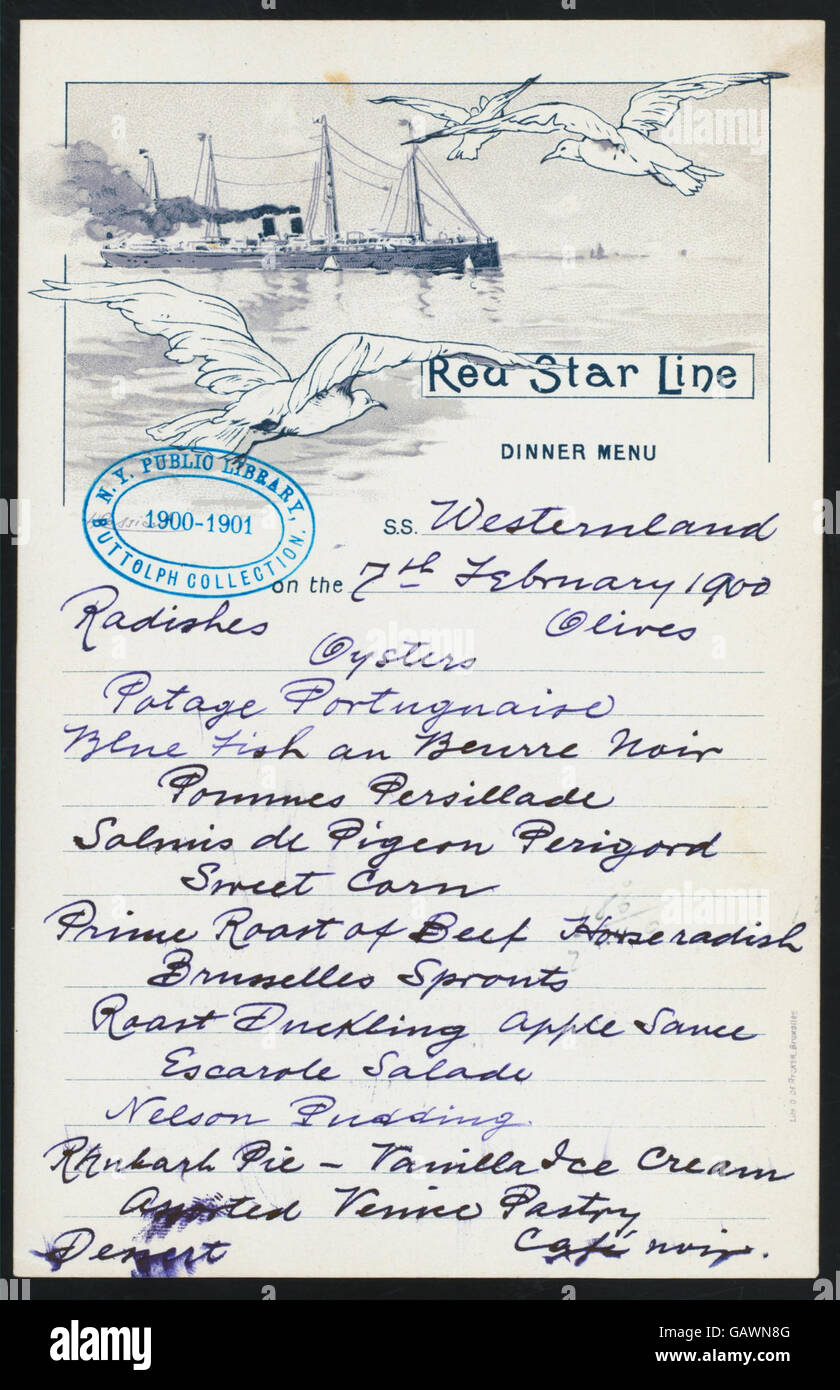 Red Star Line
DINNER MENU
N.Y. PUBLIC LIBRARY,
1900-1901
BUTTOLPH COLLECTION.
S.S. Westernland
on the 7th February 1900
Radishes Olives
Oysters
Potage Portugnaise
Blue Fish au Beurre Noir
Pommes Persillade
Salmis de Pigeon Perigord
Sweet Corn
Prime Roast of Beef Horseradish
Brusselles Sprouts
Roast Duckling Apple Sauce
Escarole Salade
Nelson Pudding.
Rhubarb Pie - Vanilla Ice Cream
Assorted Venice Pastry
Dessert Café noir.
alamy
alamy stock photo
GAWN8G
www.alamy.com